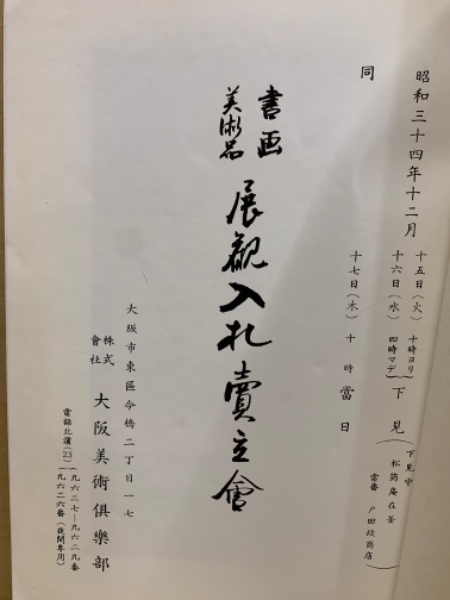 昭和三十四年十二月
十五日（火）
十六日（水）
十時ヨリ
四時マデ
下見
下見中
松筠庵在釜
当番 戸田政商店
同
十七日（木）十時當日
書画
美術品
展観入札賣立會
大阪市東區今橋二丁目一七
株式
會社
大阪美術倶樂部
電話北濱(23)
九六二七―九六二九番
九六二六番（夜間専用）